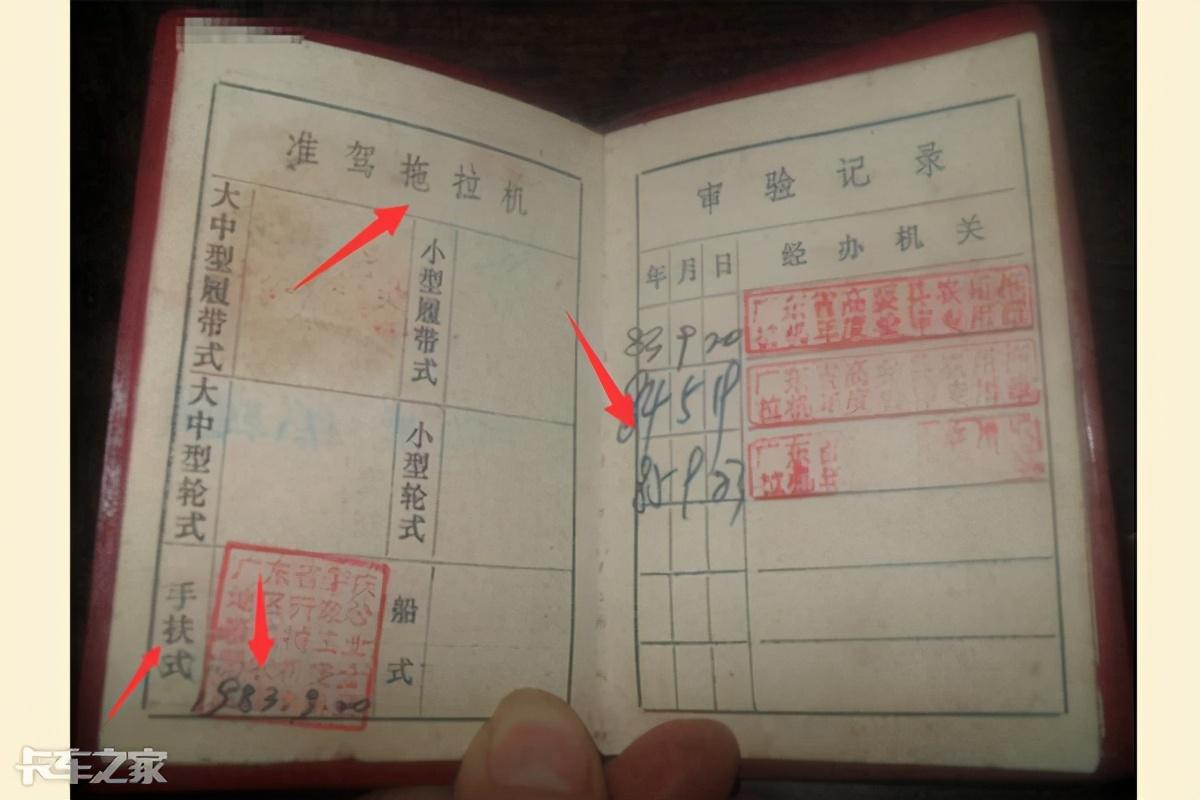 准驾拖拉机
大中型履带式
小型履带式
大中型轮式
小型轮式
手扶式
广东省肇庆
地区行政公
1983.9.20
船式
审验记录
年 月 日 经办机关
83 9 20
广东省高要县农用
拉机年度
84 5 19
广东省高
拉机年度
85 9 23
广东省
拉机年
卡车之家